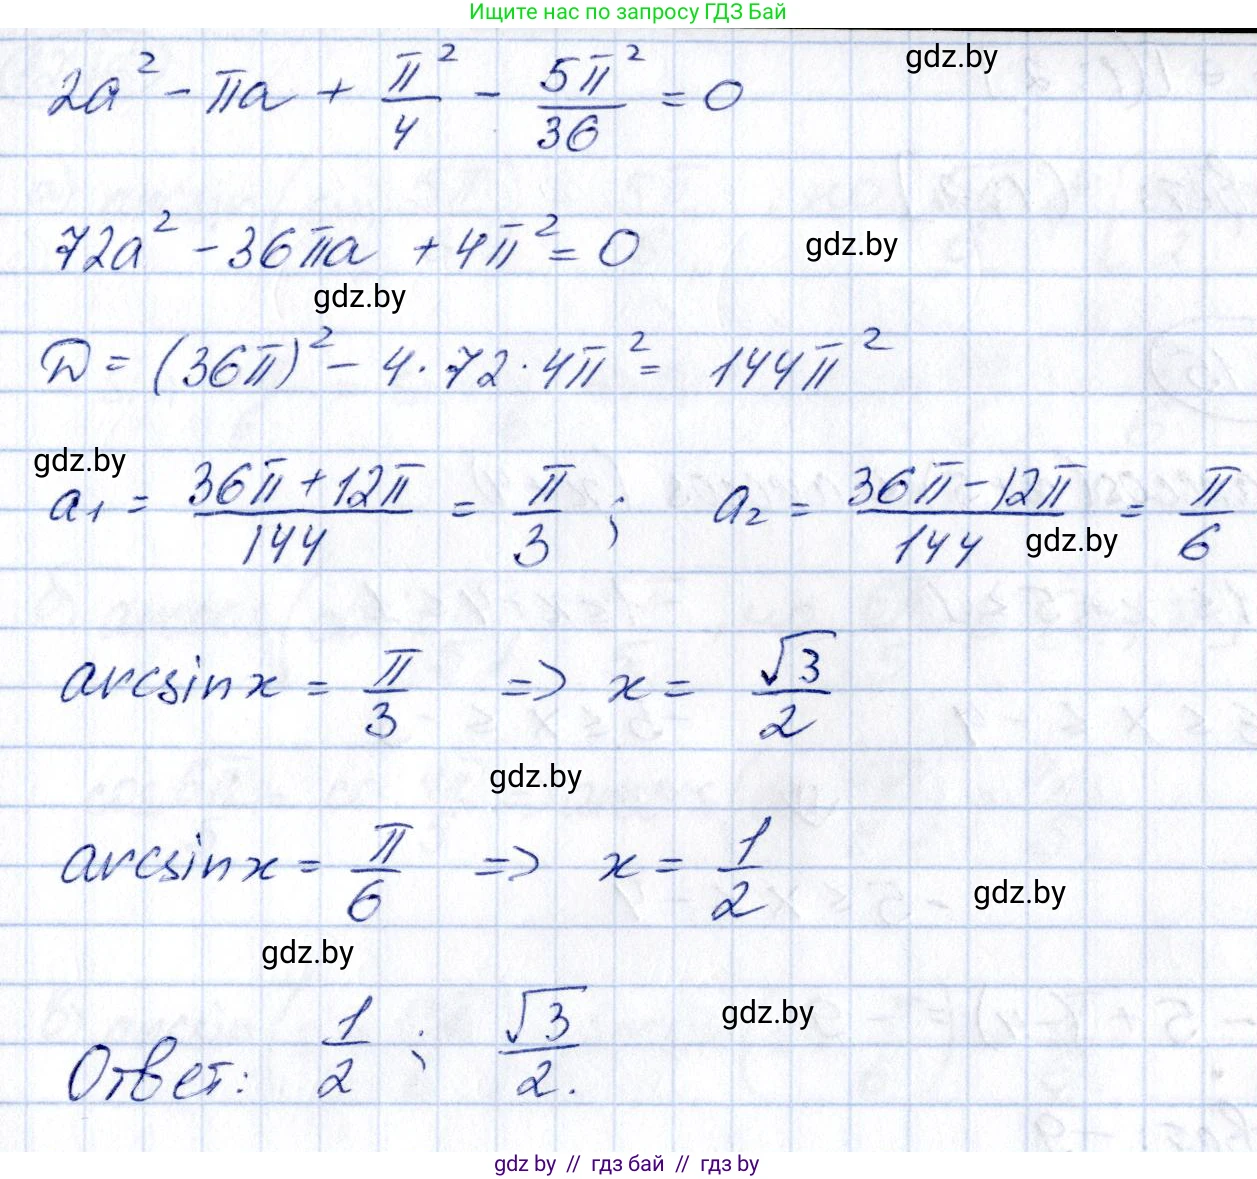 Ищите нас по запросу ГДЗ Бай
2a² - πa + π²/4 - 5π²/36 = 0
gdz.by
72a² - 36πa + 4π² = 0
gdz.by
gdz.by
D = (36π)² - 4·72·4π² = 144π²
gdz.by
a₁ = (36π+12π)/144 = π/3 ; a₂ = (36π-12π)/144 = π/6
gdz.by
arcsin x = π/3 => x = √3/2
gdz.by
arcsin x = π/6 => x = 1/2
gdz.by
gdz.by
gdz.by
Ответ: 1/2 ; √3/2.
gdz by // гдз бай // гдз by